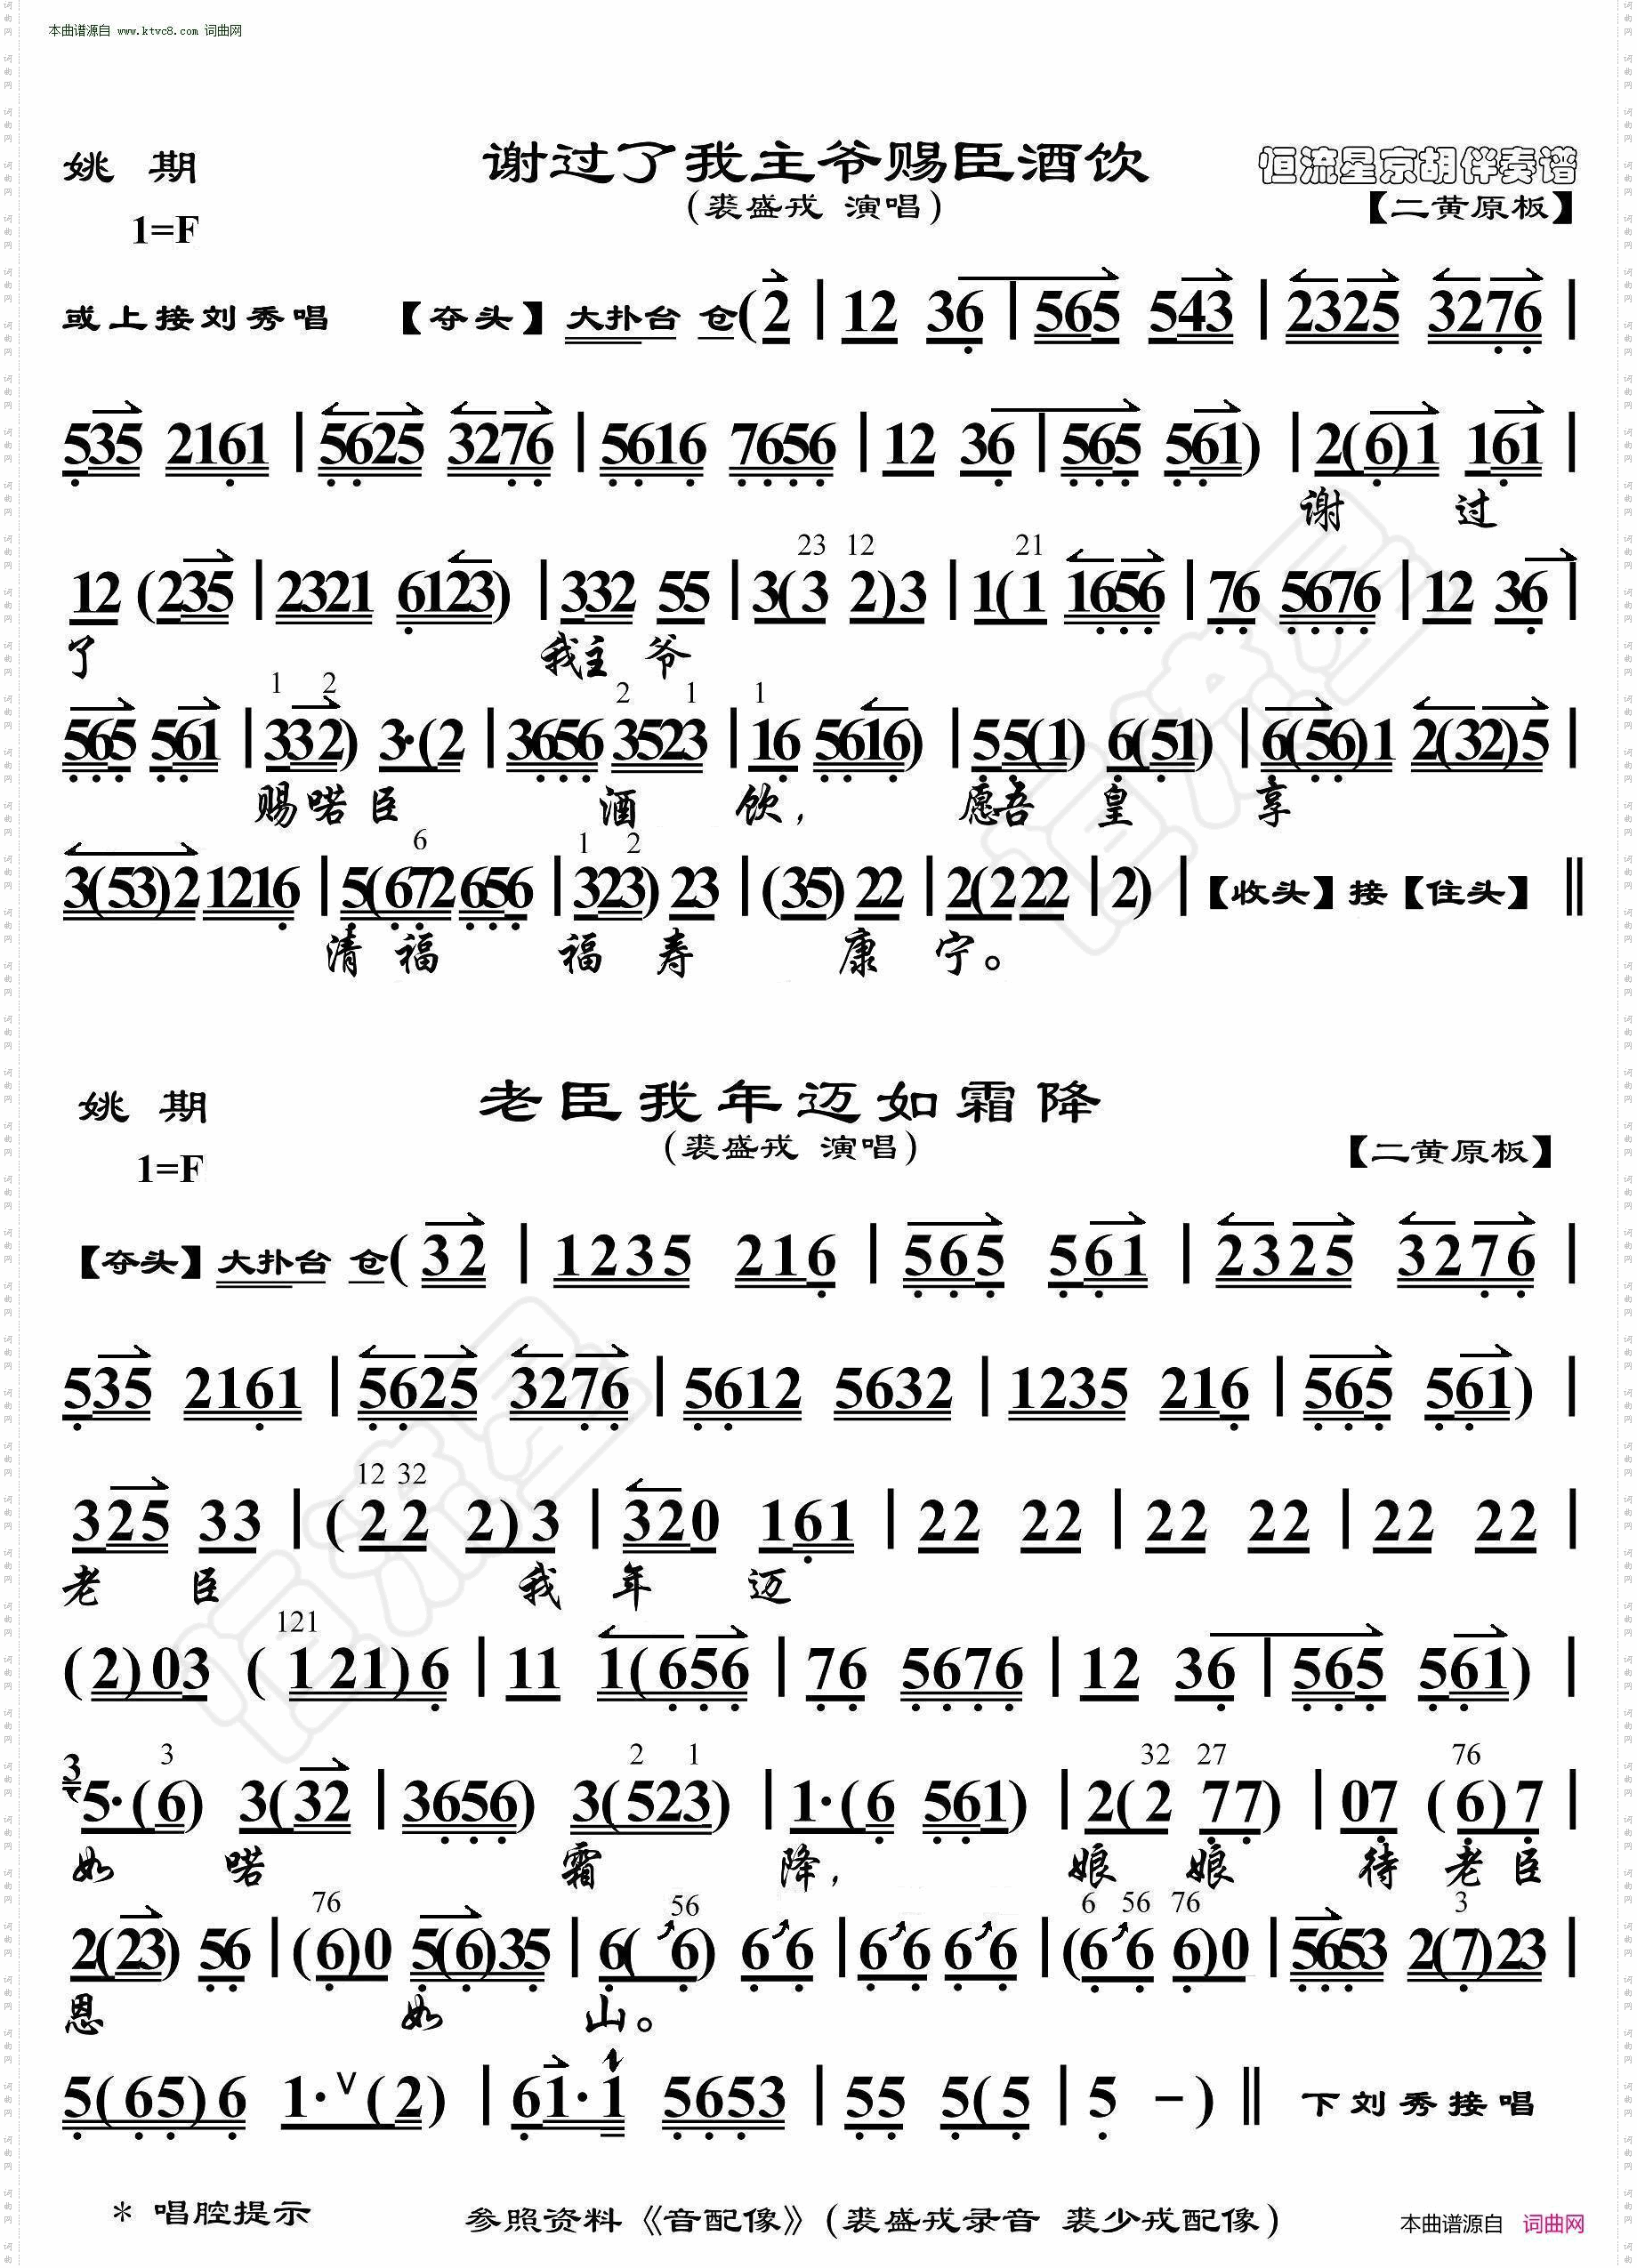 本曲谱源自 www.ktvc8.com 词曲网
姚 期 谢过了我主爷赐臣酒饮 恒流星京胡伴奏谱
(裘盛戎 演唱) 【二黄原板】
1=F
或上接刘秀唱 【夺头】 大扑台 仓(2 | 12 36 | 565 543 | 2325 3276 |
535 2161 | 5625 3276 | 5616 7656 | 12 36 | 565 561) | 2(6)1 161 |
谢 过
23 12 21
12 (235 | 2321 6123) | 332 55 | 3(3 2)3 | 1(1 1656 | 76 5676 | 12 36 |
了 我主 爷
1 2 2 1 1
565 561 | 332) 3·(2 | 3656 3523 | 16 5616) | 55(1) 6(51) | 6(56)1 2(32)5 |
赐喏臣 酒 饮, 愿吾 皇 享
6 1 2
3(53)2 1216 | 5(672 656 | 323) 23 | (35) 22 | 2(2 22 | 2) | 【收头】接【住头】 ‖
清 福 福 寿 康 宁。
姚 期 老臣我年迈如霜降
(裘盛戎 演唱) 【二黄原板】
1=F
【夺头】 大扑台 仓(32 | 1235 216 | 565 561 | 2325 3276 |
535 2161 | 5625 3276 | 5612 5632 | 1235 216 | 565 561) |
12 32
325 33 | (22 2)3 | 320 161 | 22 22 | 22 22 | 22 22 |
老 臣 我 年 迈
121
(2)03 (121)6 | 11 1(656 | 76 5676 | 12 36 | 565 561) |
3 3 2 1 32 27 76
5·(6) 3(32 | 3656) 3(523) | 1·(6 561) | 2(2 77) | 07 (6)7 |
如 喏 霜 降, 娘 娘 待 老 臣
76 56 6 56 76 3
2(23) 56 | (6)0 5(6)35 | 6( 6) 66 | 66 66 | (66 6)0 | 5653 2(7)23 |
恩 如 山。
5(65)6 1·∨(2) | 61·1 5653 | 55 5(5 | 5 －) ‖ 下刘秀接唱
* 唱腔提示 参照资料《音配像》(裘盛戎录音 裘少戎配像)
本曲谱源自 词曲网